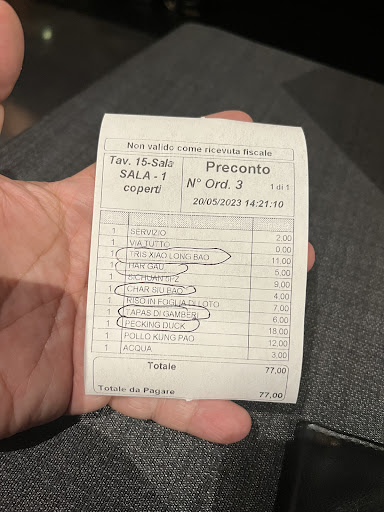 Non valido come ricevuta fiscale
Tav. 15-Sala
SALA - 1
coperti
Preconto
N° Ord. 3 1 di 1
20/05/2023 14:21:10
1 SERVIZIO 2,00
1 VIA TUTTO 0,00
1 TRIS XIAO LONG BAO 11,00
1 HAR GAU 5,00
1 SICHUAN SPZ 9,00
1 CHAR SIU BAO 4,00
1 RISO IN FOGLIA DI LOTO 7,00
1 TAPAS DI GAMBERI 6,00
1 PECKING DUCK 18,00
1 POLLO KUNG PAO 12,00
1 ACQUA 3,00
Totale 77,00
Totale da Pagare 77,00